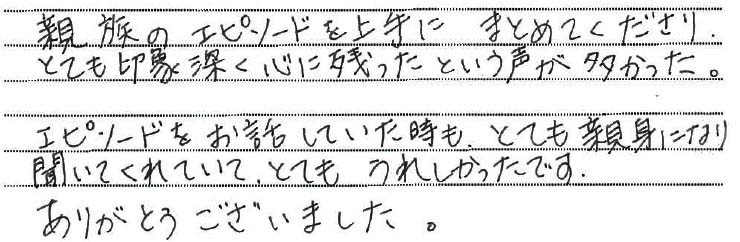 親族のエピソードを上手に まとめてくださり、
とても印象深く心に残ったという声が多かった。
エピソードをお話していた時も、とても親身になり
聞いてくれていて、とても うれしかったです。
ありがとうございました。